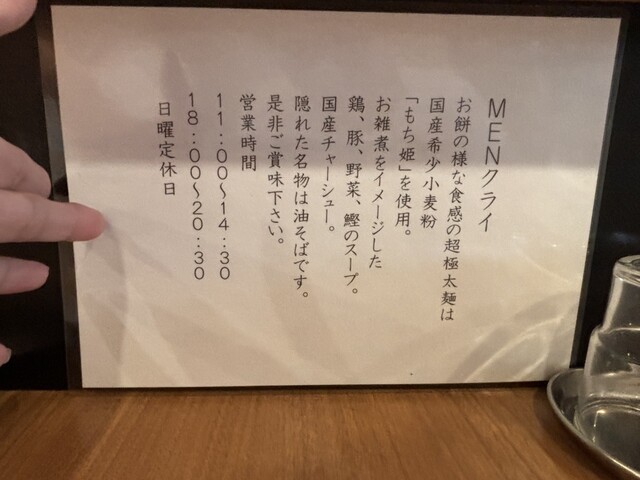 MENクライ
お餅の様な食感の超極太麺は
国産希少小麦粉
「もち姫」を使用。
お雑煮をイメージした
鶏、豚、野菜、鰹のスープ。
国産チャーシュー。
隠れた名物は油そばです。
是非ご賞味下さい。
営業時間
11:00〜14:30
18:00〜20:30
日曜定休日